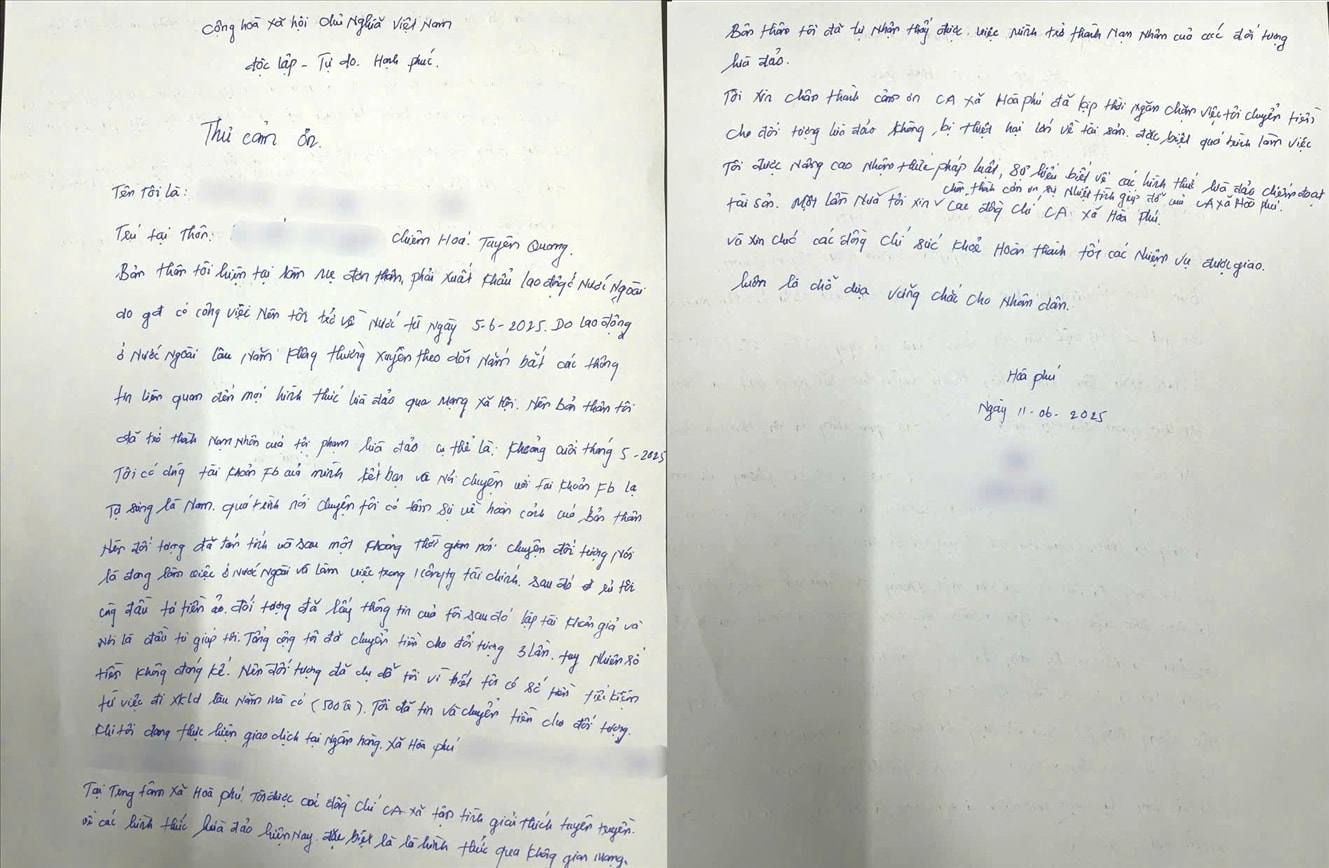 Cộng hoà xã hội chủ Nghĩa Việt Nam
độc lập - Tự do. Hạnh phúc.
Thư cảm ơn.
Tên tôi là:
Trú tại thôn: Chiêm Hoá. Tuyên Quang.
Bản thân tôi hiện tại làm mẹ đơn thân, phải xuất khẩu lao động ở Nước Ngoài
do gđ có công việc Nên tôi trở về Nước từ Ngày 5-6-2025. Do lao động
ở Nước Ngoài lâu Năm không thường xuyên theo dõi Nắm bắt các thông
tin liên quan đến mọi hình thức lừa đảo qua mạng xã hội. Nên bản thân tôi
đã trở thành Nạn Nhân của tội phạm lừa đảo cụ thể là: Khoảng cuối tháng 5-2025
Tôi có dùng tài khoản Fb của mình kết bạn và Nói chuyện với tài khoản Fb lạ
quá trình nói chuyện tôi có tâm sự về hoàn cảnh của bản thân
Nên đối tượng đã tán tỉnh và sau một khoảng thời gian nói chuyện đối tượng Nói
là đang làm việc ở Nước Ngoài và làm việc trong 1 công ty tài chính. sau đó rủ tôi
cùng đầu tư tiền ảo. đối tượng đã lấy thông tin của tôi sau đó lập tài khoản giả và
Nói là đầu tư giúp tôi. Tổng cộng tôi đã chuyển tiền cho đối tượng 3 lần. tuy nhiên số
tiền không đáng kể. Nên đối tượng đã dụ dỗ tôi vì biết tôi có số tiền tiết kiệm
từ việc đi xklđ lâu Năm mà có (500tr). Tôi đã tin và chuyển tiền cho đối tượng.
Khi tôi đang thực hiện giao dịch tại Ngân hàng. xã Hoà phú
Tại Trung tâm xã Hoà phú. Tôi được các đồng chí CA xã tận tình giải thích tuyên truyền
về các hình thức lừa đảo hiện Nay. đặc biệt là là hình thức qua không gian mạng.
Bản thân tôi đã tự Nhận thấy được việc mình trở thành Nạn Nhân của các đối tượng
lừa đảo.
Tôi xin chân thành cảm ơn CA xã Hoà phú đã kịp thời ngăn chặn việc tôi chuyển tiền
cho đối tượng lừa đảo không bị thiệt hại lớn về tài sản. đặc biệt quá trình làm việc
Tôi được Nâng cao Nhận thức pháp luật, sự hiểu biết về các hình thức lừa đảo chiếm đoạt
chân thành cảm ơn sự Nhiệt tình giúp đỡ của CA xã Hoà phú.
tài sản. Một lần Nữa tôi xin các đồng chí CA xã Hoà phú.
và xin chúc các đồng chí sức khoẻ Hoàn thành tốt các Nhiệm vụ được giao.
luôn là chỗ dựa vững chắc cho Nhân dân.
Hoà phú
Ngày 11-06-2025